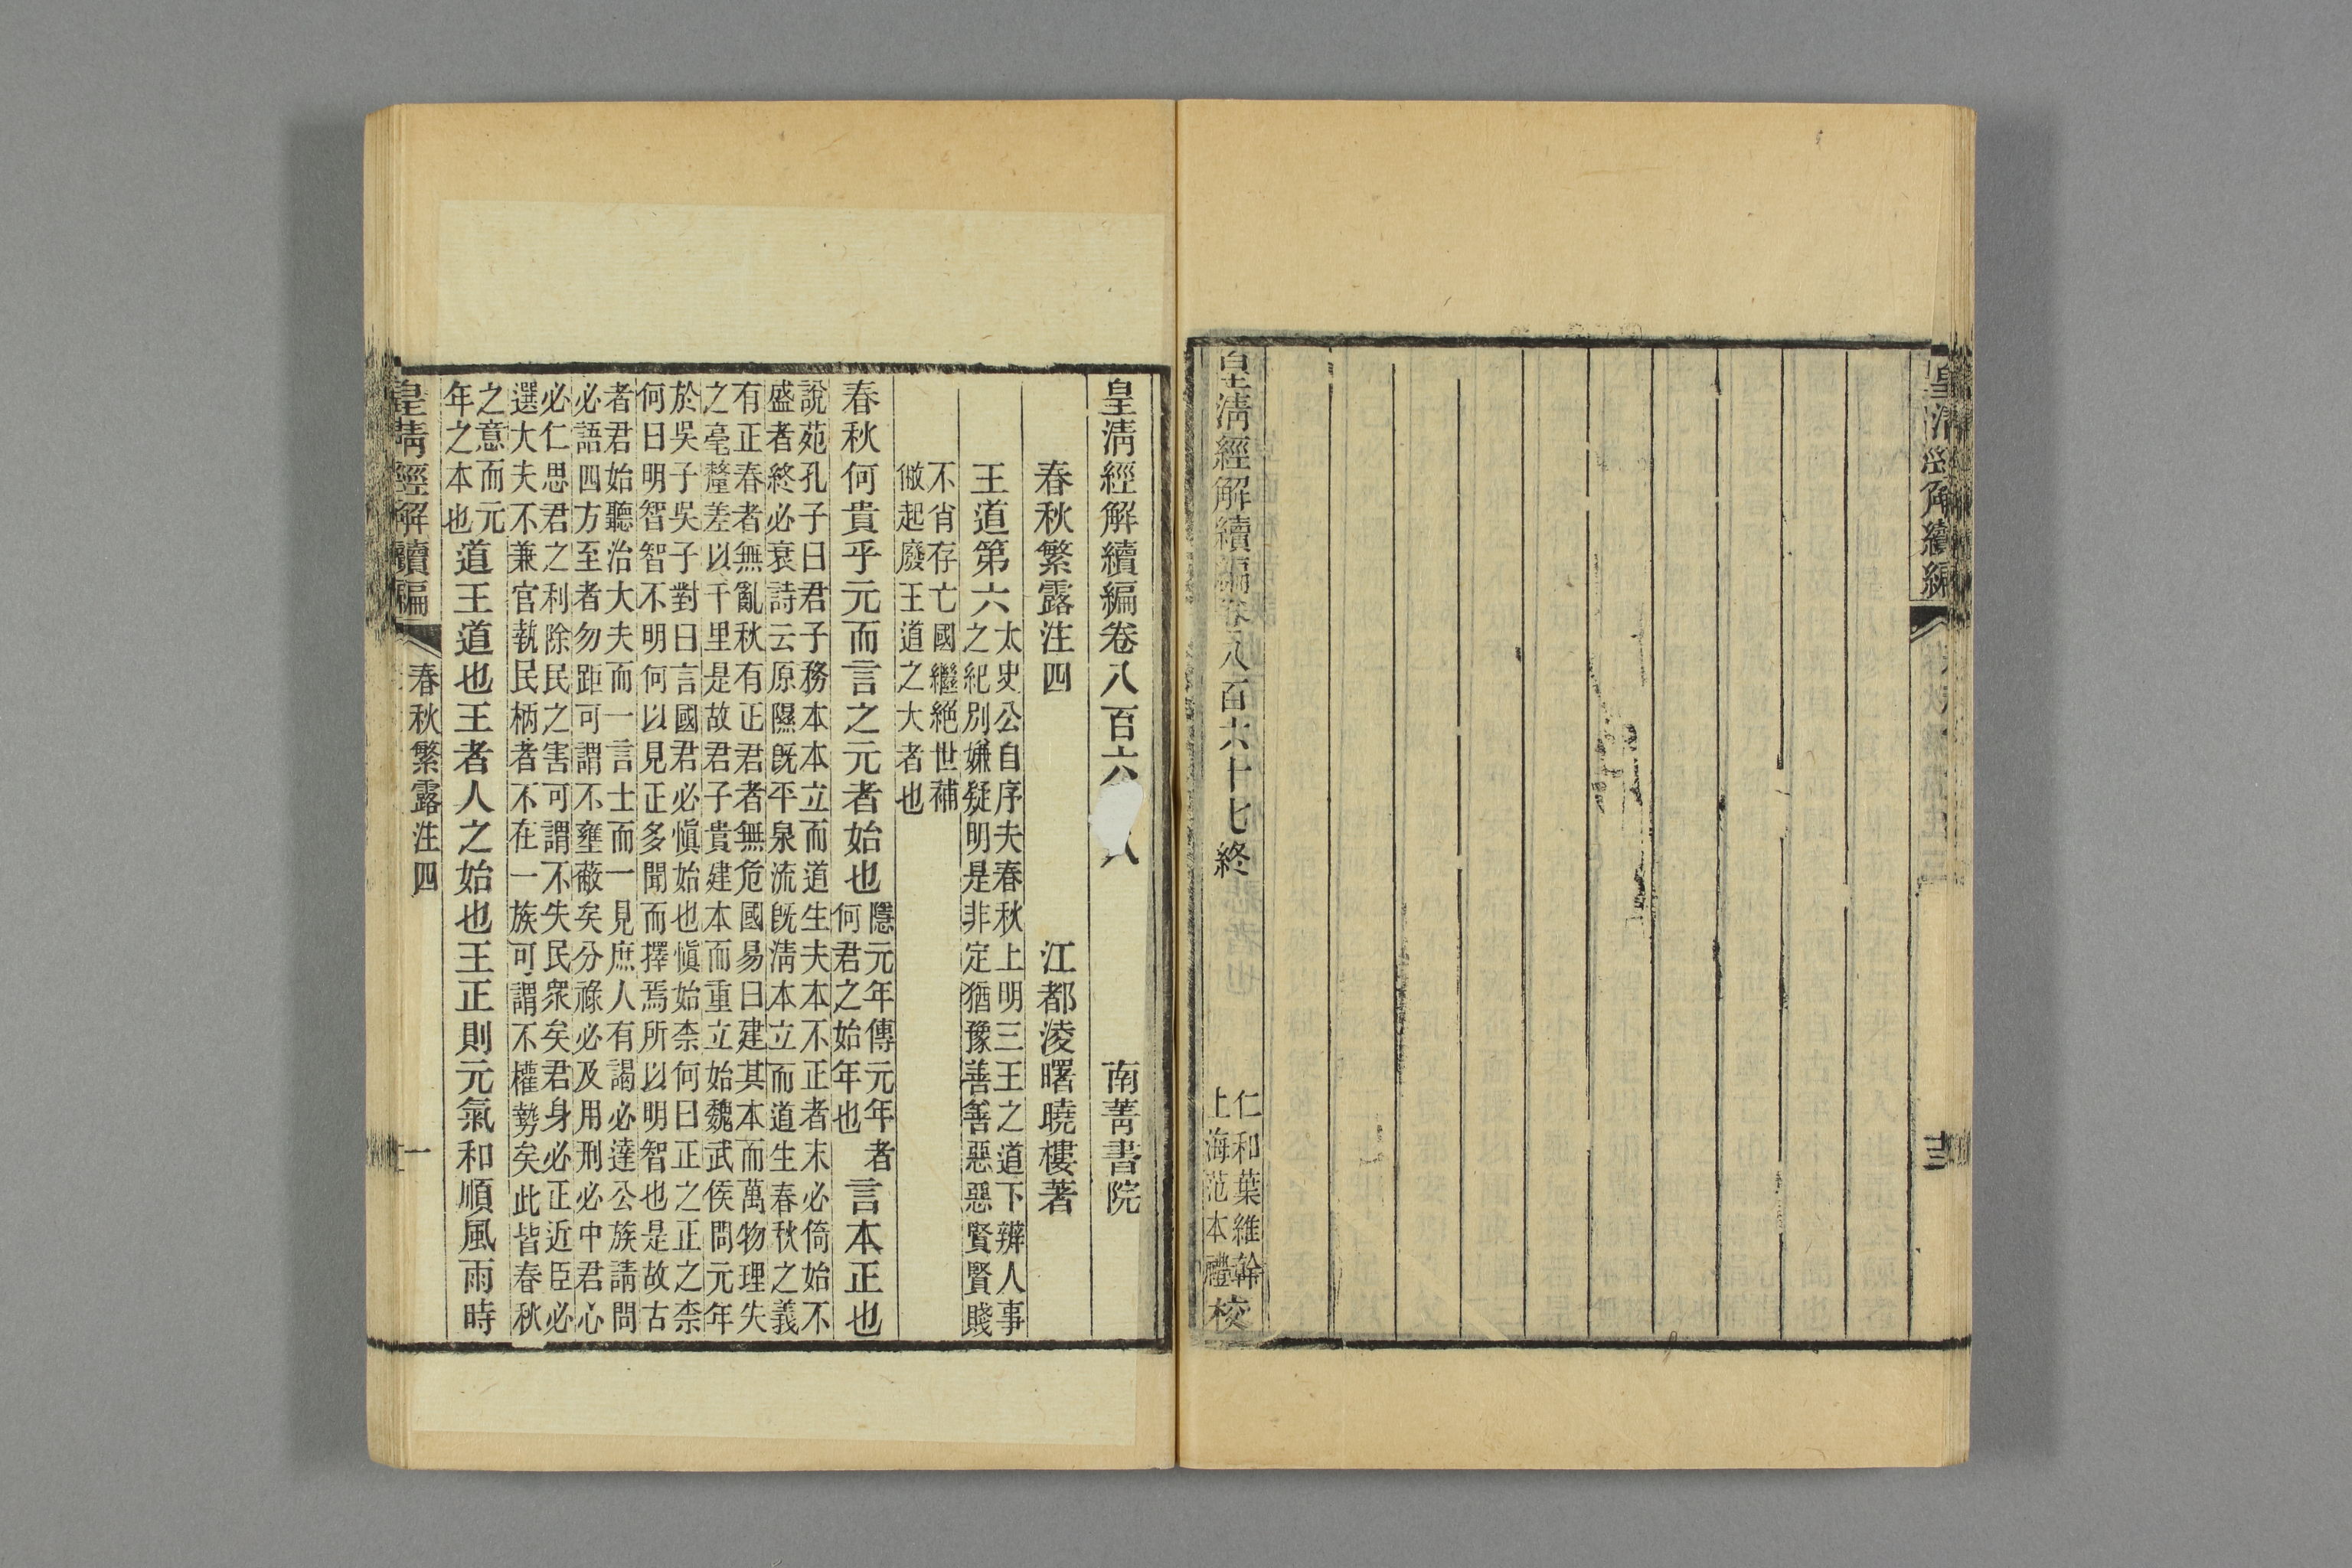 皇清經解續編
十三
皇清經解續編卷八百六十七終
仁和葉維幹
上海范本禮
校
皇清經解續編卷八百六八 南菁書院
春秋繁露注四 江都淩曙曉樓著
王道第六
太史公自序夫春秋上明三王之道下辨人事
之紀別嫌疑明是非定猶豫善善惡惡賢賢賤
不肖存亡國繼絕世補
敝起廢王道之大者也
春秋何貴乎元而言之元者始也
隱元年傳元年者
何君之始年也
言本正也
說苑孔子曰君子務本本立而道生夫本不正者末必倚始不
盛者終必衰詩云原隰旣平泉流旣淸本立而道生春秋之義
有正春者無亂秋有正君者無危國易曰建其本而萬物理失
之毫釐差以千里是故君子貴建本而重立始魏武侯問元年
於吳子吳子對曰言國君必愼始也愼始柰何曰正之正之柰
何曰明智智不明何以見正多聞而擇焉所以明智也是故古
者君始聽治大夫而一言士而一見庶人有謁必達公族請問
必語四方至者勿距可謂不壅蔽矣分祿必及用刑必中君心
必仁思君之利除民之害可謂不失民衆矣君身必正近臣必
選大夫不兼官執民柄者不在一族可謂不權勢矣此皆春秋
之意而元
年之本也
道王道也王者人之始也王正則元氣和順風雨時
皇清經解續編 春秋繁露注四 一